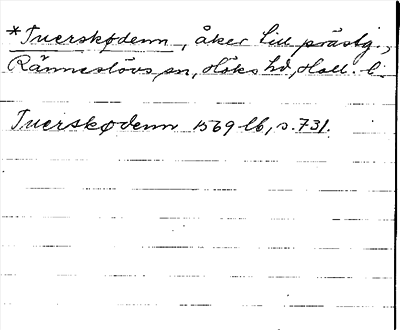 *Tuerskødenn, åker till prästg.,
Ränneslövs sn, Höks hd, Hall. l.
Tuerskødenn 1569 lb, s. 731.